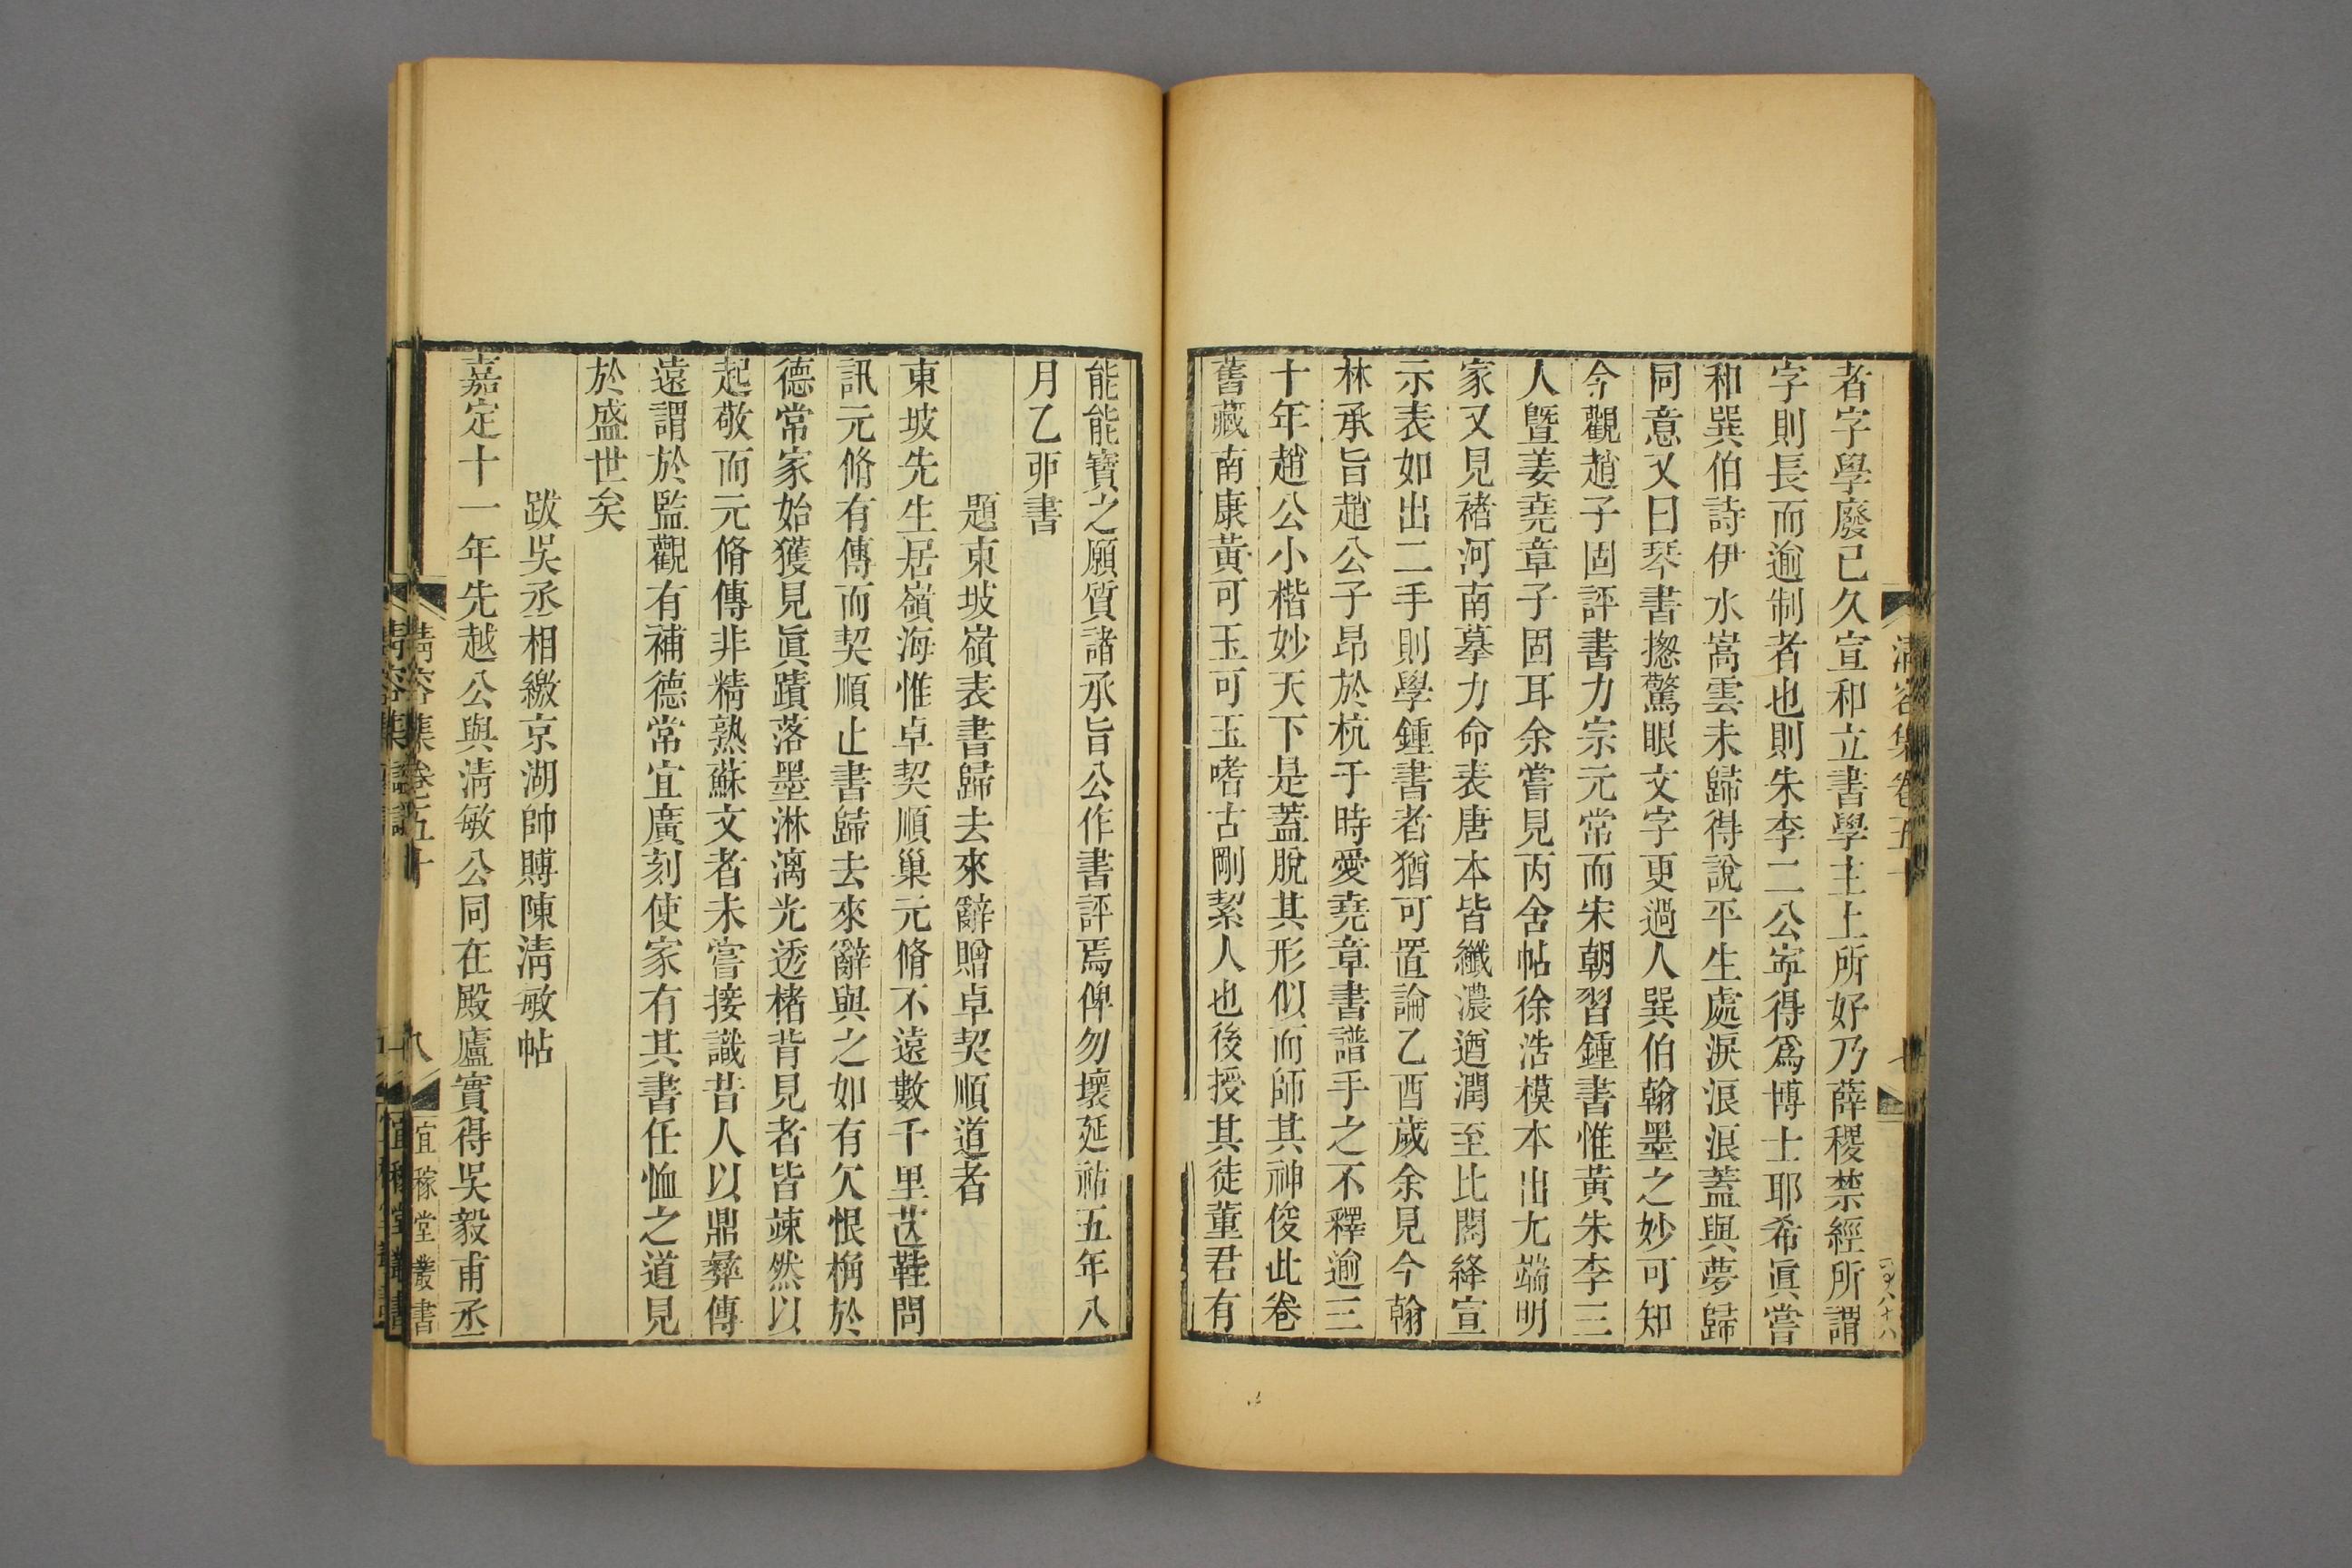 清容集卷五十
七
者字學廢已久宣和立書學主上所好乃薛稷禁經所謂
字則長而逾制者也則朱李二公寕得爲博士耶希眞嘗
和巽伯詩伊水嵩雲未歸得說平生處淚浪浪蓋與夢歸
同意又曰琴書揔驚眼文字更過人巽伯翰墨之妙可知
今觀趙子固評書力宗元常而宋朝習鍾書惟黃朱李三
人曁姜堯章子固耳余嘗見丙舍帖徐浩模本出尤端明
家又見褚河南摹力命表唐本皆纖濃遒潤至比閣絳宣
示表如出二手則學鍾書者猶可置論乙酉歲余見今翰
林承旨趙公子昂於杭于時愛堯章書譜手之不釋逾三
十年趙公小楷妙天下是蓋脫其形似而師其神俊此卷
舊藏南康黃可玉可玉嗜古剛絜人也後授其徒董君有
能能寶之願質諸承旨公作書評焉俾勿壞延祐五年八
月乙丣書
題東坡嶺表書歸去來辭贈卓契順道者
東坡先生居嶺海惟卓契順巢元脩不遠數千里芒鞋問
訊元脩有傳而契順止書歸去來辭與之如有欠恨桷於
德常家始獲見眞蹟落墨淋漓光透楮背見者皆竦然以
起敬而元脩傳非精熟蘇文者未嘗接識昔人以鼎彝傳
遠謂於監觀有補德常宜廣刻使家有其書任恤之道見
於盛世矣
跋吳丞相繳京湖帥賻陳淸敏帖
嘉定十一年先越公與淸敏公同在殿廬實得吳毅甫丞
清容集卷五十
八
宜稼堂叢書